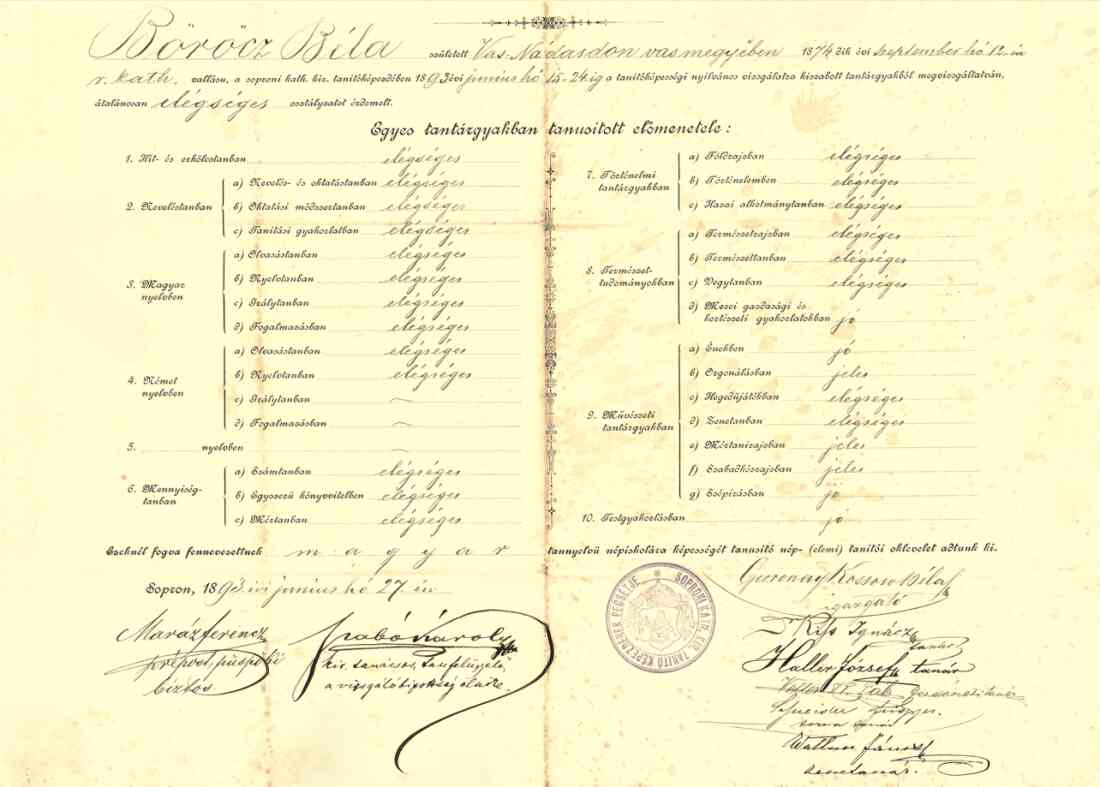 Böröcz Béla született Vas-Nádasdon vasmegyében 1874 dik évi szeptember hó 12-én
r. kath. vallásu, a soproni kath. kir. tanítóképezdében 1893 évi junius hó 15-24. ig a tanítóképességi nyilvános vizsgálatra kiszabott tantárgyakból megvizsgáltatván,
átalánosan elégséges osztályzatot érdemelt.
Egyes tantárgyakban tanusított előmenetele:
1. Hit- és erkölcstanban elégséges
2. Neveléstanban
a) Nevelés- és oktatástanban elégséges
b) Oktatási módszertanban elégséges
c) Tanítási gyakorlatban elégséges
3. Magyar nyelvben
a) Olvasástanban elégséges
b) Nyelvtanban elégséges
c) Irálytanban elégséges
d) Fogalmazásban elégséges
4. Német nyelvben
a) Olvasástanban elégséges
b) Nyelvtanban elégséges
c) Irálytanban —
d) Fogalmazásban —
5. nyelvben —
6. Mennyiség-
tanban
a) Számtanban elégséges
b) Egyszerű könyvvitelben elégséges
c) Mértanban elégséges
7. Történelmi
tantárgyakban
a) Földrajzban elégséges
b) Történelemben elégséges
c) Hazai alkotmánytanban elégséges
8. Természet-
tudományokban
a) Természetrajzban elégséges
b) Természettanban elégséges
c) Vegytanban elégséges
d) Mezei gazdasági és
kertészeti gyakorlatokban jó
9. Művészeti
tantárgyakban
a) Énekben jó
b) Orgonálásban jeles
c) Hegedüjátékban elégséges
d) Zenetanban elégséges
e) Mértanirajzban jeles
f) Szabadkézrajzban jeles
g) Szépírásban jó
10. Testgyakorlásban jó
Ezeknél fogva fennevezettnek magyar tannyelvü népiskolára képességét tanusító nép- (elemi) tanítói oklevelet adtunk ki.
Sopron, 1893. évi junius hó 27. én
Maráz Ferencz
prépost, püspöki
biztos
Szabó Károly
kir. tanácsos, tanfelügyelő
a vizsgálóbizottság elnöke.
SOPRONI KATH. KIR. TANITÓ KÉPEZDÉNEK PECSÉTJE
Kossow Béla
igazgató
Dr Kiss Ignácz
tanár
Haller József tanár
János
zenetanár.